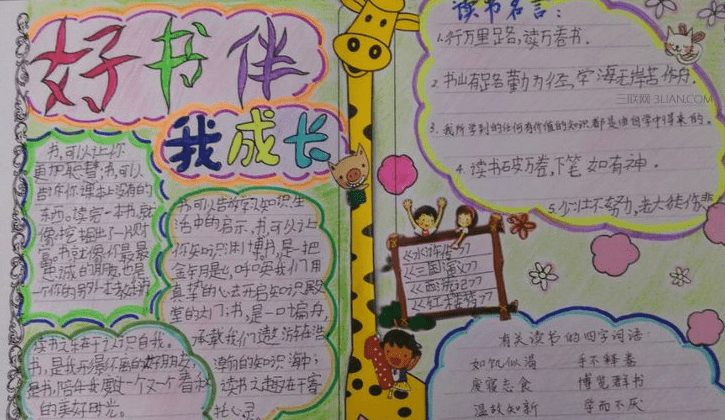 好书伴
我成长
书,可以让你
更加聪慧;书,可以
告诉你课本上没有的
东西。读完一本书,就
像挖掘出了一份财
富。书就像你最最
忠诚的朋友,也是
一个你的另外
书可以告诉我知识,生
活中的启示,书,可以让
你知识渊博。书,是一把
金钥匙,呼唤我们用
真挚的心去开启知识殿
堂的大门;书,是一叶扁舟,
承载我们遨游在浩
瀚的知识海中;
读书之趣在于容
读书之乐在于认识自我。
书,是我形影不离的好朋友,
是书,陪伴我度过一个又一个
的美好时光。
读书名言:
1.行万里路,读万卷书.
2.书山有路勤为径,学海无岸苦作舟.
3.我所学到的任何有价值的知识都是由自学中得来的.
4.读书破万卷,下笔如有神.
5.少壮不努力,老大徒伤悲
《水浒传》
《三国演义》
《西游记》
《红楼梦》
有关读书的四字词语:
如饥似渴 手不释卷
废寝忘食 博览群书
温故知新 学而不厌
三联网 3LIAN.COM